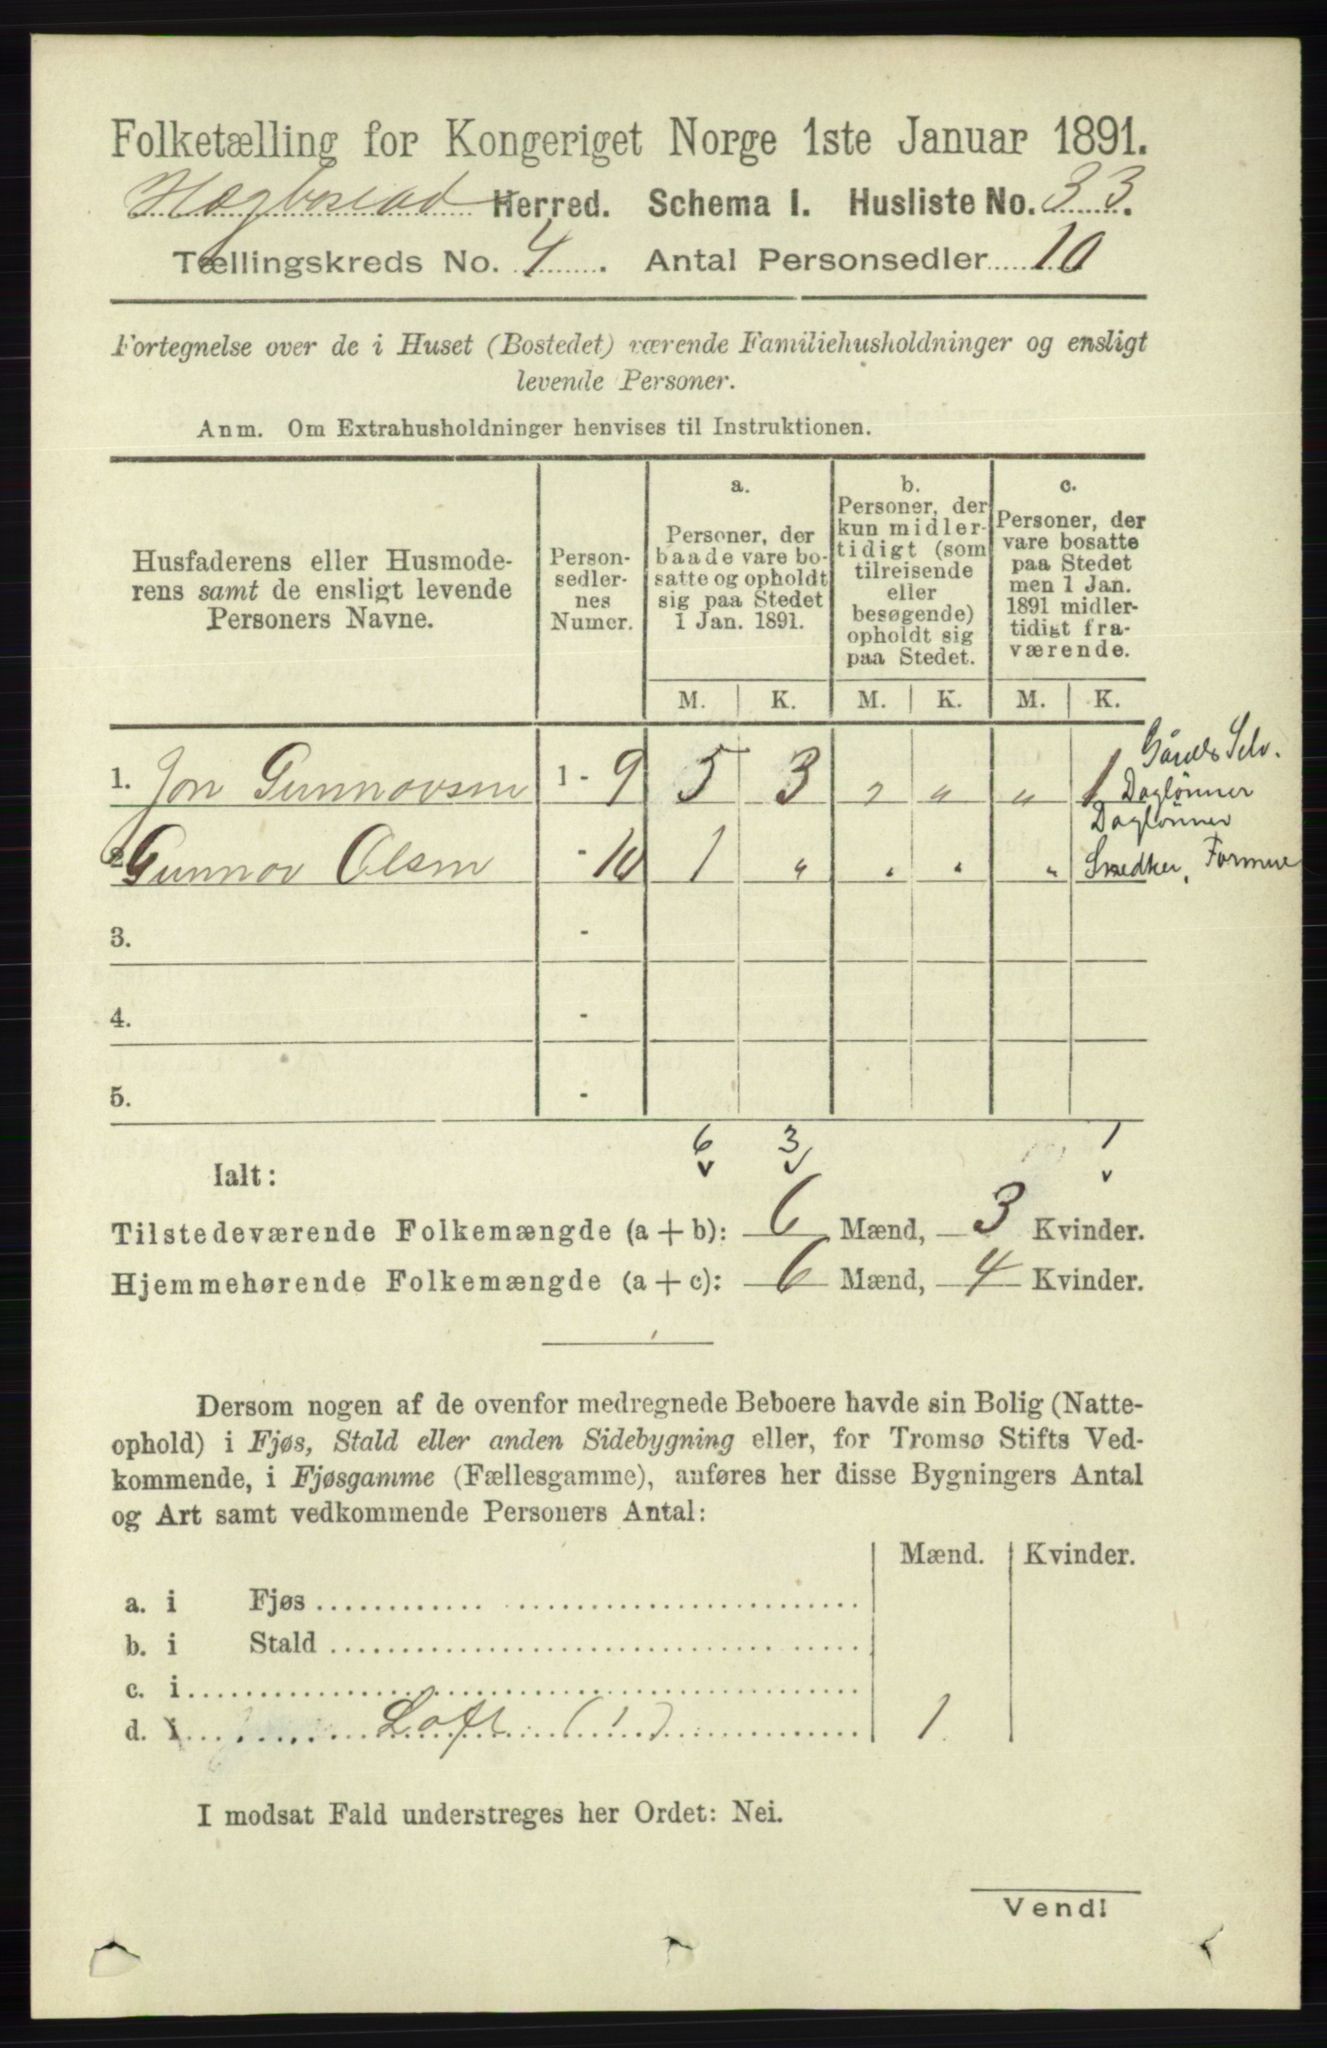 Folketælling for Kongeriget Norge 1ste Januar 1891.
Hægbostad Herred. Schema I. Husliste No. 33.
Tællingskreds No. 4. Antal Personsedler 10
Fortegnelse over de i Huset (Bostedet) værende Familiehusholdninger og ensligt
levende Personer.
Anm. Om Extrahusholdninger henvises til Instruktionen.
Husfaderens eller Husmode-
rens samt de ensligt levende
Personers Navne.
Person-
sedler-
nes
Numer.
a.
Personer, der
baade vare bo-
satte og opholdt
sig paa Stedet
1 Jan. 1891.
b.
Personer, der
kun midler-
tidigt (som
tilreisende
eller
besøgende)
opholdt sig
paa Stedet.
c.
Personer, der
vare bosatte
paa Stedet
men 1 Jan.
1891 midler-
tidigt fra-
værende.
M. K. M. K. M. K.
Gårdb Selv.
1. Jon Gunnovsen 1 - 9 5 3 " " " 1 Daglønner
Daglønner
2. Gunnov Olsen - 10 1 " " " " Snedker, Formue
3. -
4. -
5. -
6 3 1
Ialt:
Tilstedeværende Folkemængde (a + b): 6 Mænd, 3 Kvinder.
Hjemmehørende Folkemængde (a + c): 6 Mænd, 4 Kvinder.
Dersom nogen af de ovenfor medregnede Beboere havde sin Bolig (Natte-
ophold) i Fjøs, Stald eller anden Sidebygning eller, for Tromsø Stifts Ved-
kommende, i Fjøsgamme (Fællesgamme), anføres her disse Bygningers Antal
og Art samt vedkommende Personers Antal:
Mænd. Kvinder.
a. i Fjøs
b. i Stald
c. i
d. i Loft (1) 1
I modsat Fald understreges her Ordet: Nei.
Vend!